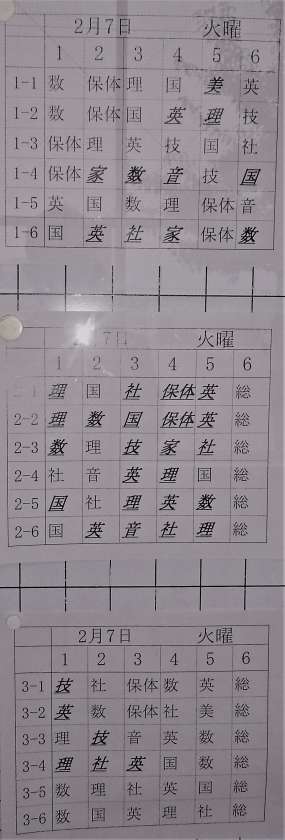 2月7日 火曜
1 2 3 4 5 6
1-1 数 保体 理 国 美 英
1-2 数 保体 国 英 理 技
1-3 保体 理 英 技 国 社
1-4 保体 家 数 音 技 国
1-5 英 国 数 理 保体 音
1-6 国 英 社 家 保体 数
7日 火曜
1 2 3 4 5 6
2-1 理 国 社 保体 英 総
2-2 理 数 国 保体 英 総
2-3 数 理 技 家 社 総
2-4 社 音 英 理 国 総
2-5 国 社 理 英 数 総
2-6 国 英 音 社 理 総
2月7日 火曜
1 2 3 4 5 6
3-1 技 社 保体 数 英 総
3-2 英 数 保体 社 美 総
3-3 理 技 音 英 数 総
3-4 理 社 英 国 数 総
3-5 数 理 社 英 国 総
3-6 数 国 英 理 社 総